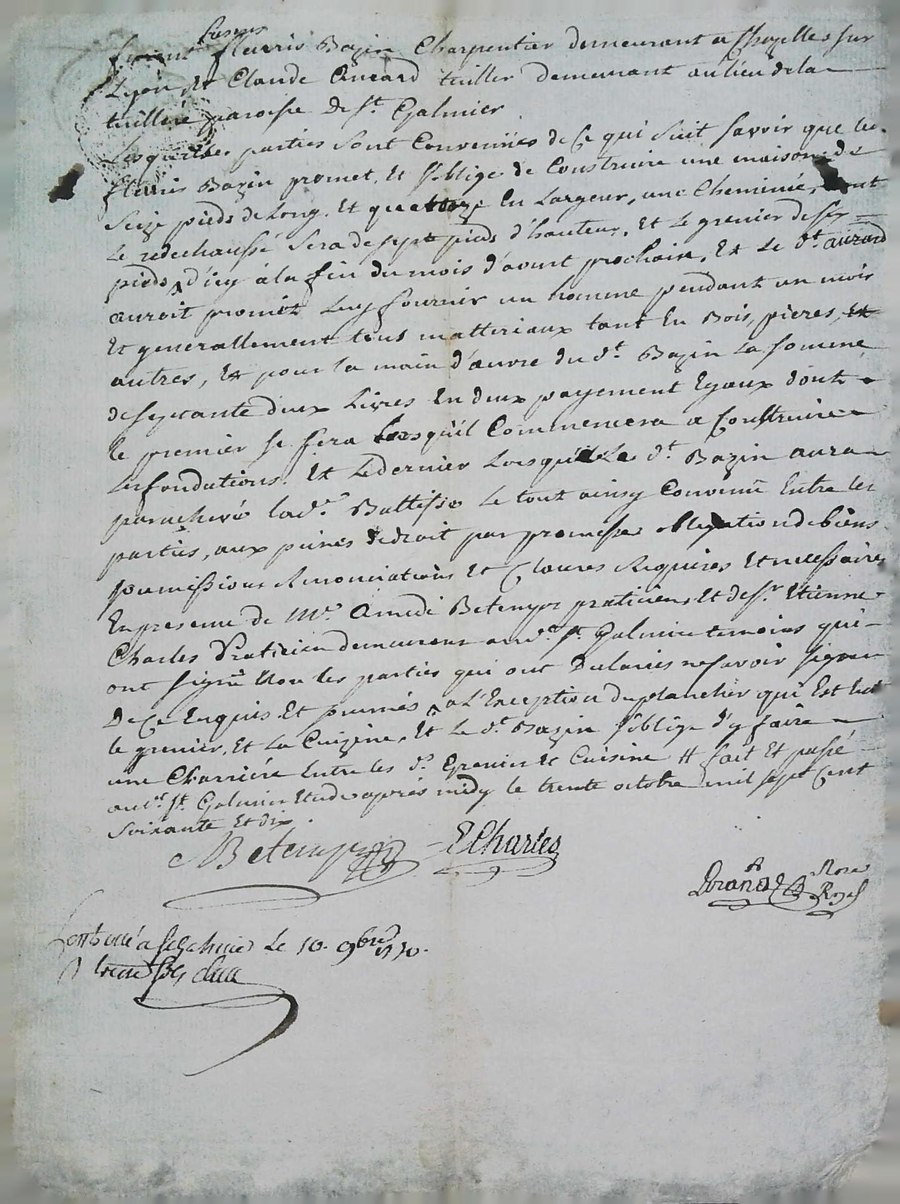 furent fleuris Bazin Charpentier demeurant a Chazelles sur
Lyon, et Claude Aurard tuillier demeurant au lieu de la
tuillere paroisse de St. Galmier
Lesquelles parties sont Convenües de Ce qui suit savoir que le
fleuris Bazin promet, Et s'oblige de Construire une maison de
Seize pieds de Long, Et quatorze En Largeur, une Cheminée, dont
Le redechaussé sera de sept pieds d'hauteur, Et Le grenier de six
pieds, d'icy à la fin du mois d'avunt prochain, Et Le dt. aurard
auroit promis Luy fournir un homme pendant un mois
Et generallement tous matteriaux tant En Bois, pieres, Et
autres, Et pour la main d'œuvre du dt. Bazin La somme
de soixante deux Livres En deux payement Egaux dont
le premier se fera Lorsqu'il Commencera a Construire
Les fondations, Et Le dernier Lorsque Le dt. Bazin aura
parachevé lade. Battisse Le tout ainsy Convenu Entre les
parties, aux peines de droit par promesses obligation de biens
soumissions Renonciations Et Clauses Requises Et necessaires
En presence de Mre. Amedé Betemps praticien, Et de sr. Etienne
Charles Praticien demeurans aud. St. Galmier temoins qui
ont signé Non les parties qui ont Declarées ne savoir signer
De Ce Enquis Et sommés, a L'Exception du plancher qui Est sur
le grenier, Et La Cuizine, Et Le dt. Bazin s'oblige d'y faire
une Charriere Entre les ds. Grenier Et Cuisine # fait Et passé
aud. St. Galmier Etude après midy le trente octobre mil sept Cent
Soixante Et dix
Betemps E Charles
Notre
Royal
Controlé a St Galmier Le 10. 9bre 1770.